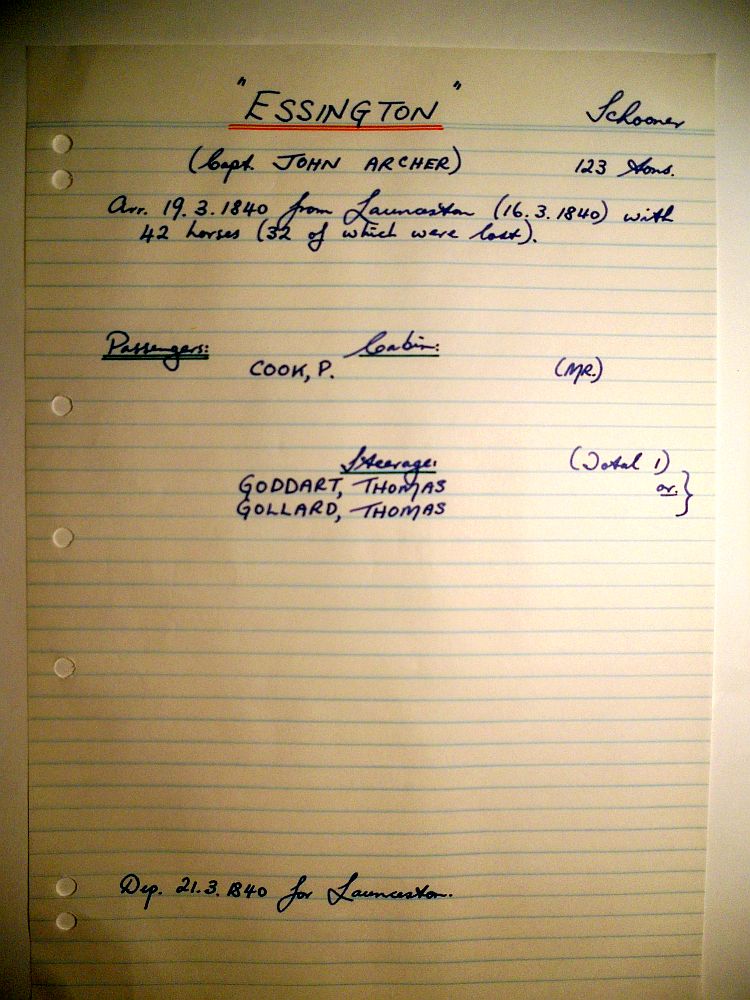 "ESSINGTON" Schooner
(Capt. JOHN ARCHER) 123 Tons.
Arr. 19.3.1840 from Launceston (16.3.1840) with
42 horses (32 of which were lost).
Passengers: Cabin:
COOK, P. (MR.)
Steerage: (Total 1)
GODDART, THOMAS or. }
GOLLARD, THOMAS
Dep. 21.3.1840 for Launceston.